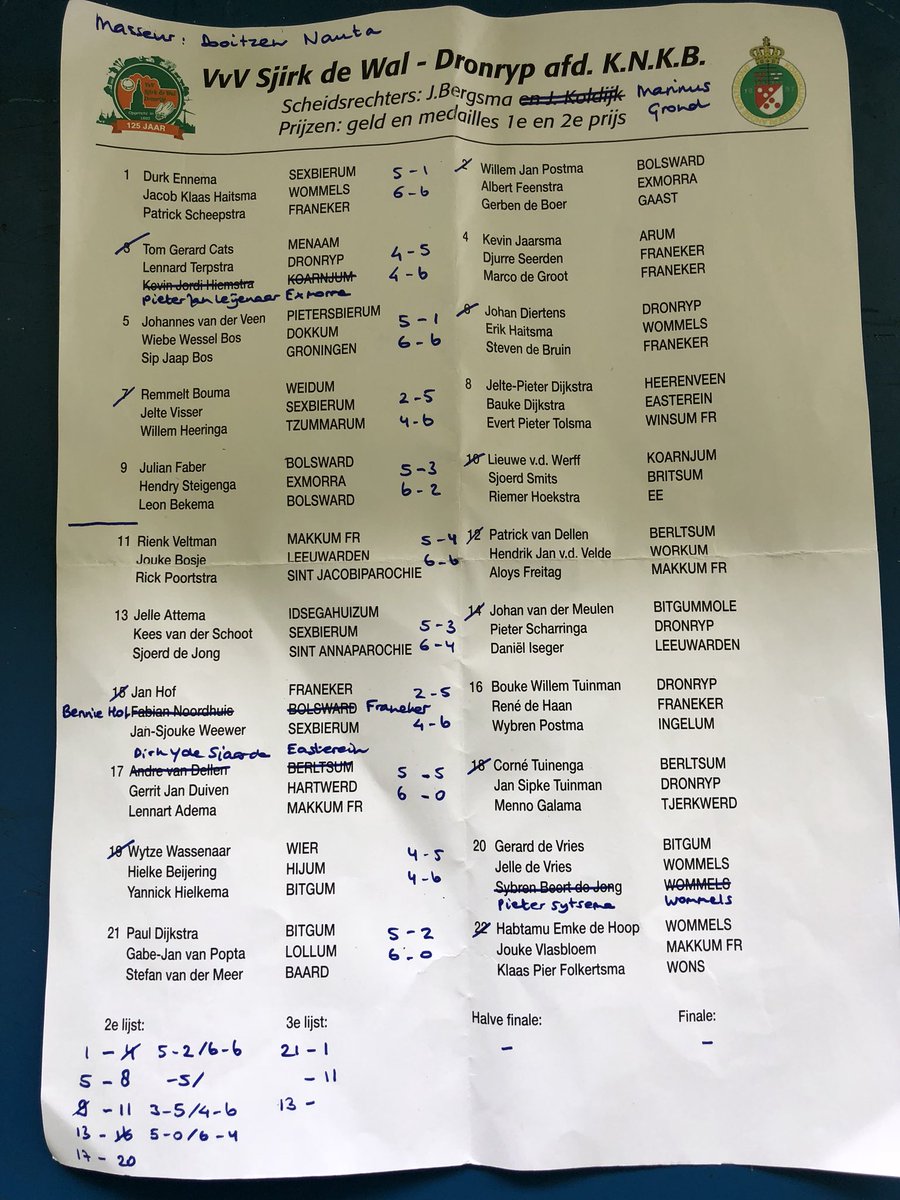 Masseur: Doitzen Nauta
VvV Sjirk de Wal - Dronryp afd. K.N.K.B.
Scheidsrechters: J.Bergsma en J. Koldijk Marinus Grond
Prijzen: geld en medailles 1e en 2e prijs
VvV Sjirk de Wal Dronrijp
125 JAAR
1 Durk Ennema SEXBIERUM 5-1 2 Willem Jan Postma BOLSWARD
Jacob Klaas Haitsma WOMMELS 6-6 Albert Feenstra EXMORRA
Patrick Scheepstra FRANEKER Gerben de Boer GAAST
3 Tom Gerard Cats MENAAM 4-5 4 Kevin Jaarsma ARUM
Lennard Terpstra DRONRYP 4-6 Djurre Seerden FRANEKER
Kevin Jordi Hiemstra KOARNJUM Marco de Groot FRANEKER
Pieter Jan Leijenaar Exmorra
5 Johannes van der Veen PIETERSBIERUM 5-1 6 Johan Diertens DRONRYP
Wiebe Wessel Bos DOKKUM 6-6 Erik Haitsma WOMMELS
Sip Jaap Bos GRONINGEN Steven de Bruin FRANEKER
7 Remmelt Bouma WEIDUM 2-5 8 Jelte-Pieter Dijkstra HEERENVEEN
Jelte Visser SEXBIERUM 4-6 Bauke Dijkstra EASTEREIN
Willem Heeringa TZUMMARUM Evert Pieter Tolsma WINSUM FR
9 Julian Faber BOLSWARD 5-3 10 Lieuwe v.d. Werff KOARNJUM
Hendry Steigenga EXMORRA 6-2 Sjoerd Smits BRITSUM
Leon Bekema BOLSWARD Riemer Hoekstra EE
11 Rienk Veltman MAKKUM FR 5-4 12 Patrick van Dellen BERLTSUM
Jouke Bosje LEEUWARDEN 6-6 Hendrik Jan v.d. Velde WORKUM
Rick Poortstra SINT JACOBIPAROCHIE Aloys Freitag MAKKUM FR
13 Jelle Attema IDSEGAHUIZUM 5-3 14 Johan van der Meulen BITGUMMOLE
Kees van der Schoot SEXBIERUM 6-4 Pieter Scharringa DRONRYP
Sjoerd de Jong SINT ANNAPAROCHIE Daniël Iseger LEEUWARDEN
15 Jan Hof FRANEKER 2-5 16 Bouke Willem Tuinman DRONRYP
Bennie Hof Fabian Noordhuis BOLSWARD Franeker 4-6 René de Haan FRANEKER
Jan-Sjouke Weewer SEXBIERUM Wybren Postma INGELUM
Dirk Yde Sjaarda Easterein
17 Andre van Dellen BERLTSUM 5-5 18 Corné Tuinenga BERLTSUM
Gerrit Jan Duiven HARTWERD 6-0 Jan Sipke Tuinman DRONRYP
Lennart Adema MAKKUM FR Menno Galama TJERKWERD
19 Wytze Wassenaar WIER 4-5 20 Gerard de Vries BITGUM
Hielke Beijering HIJUM 4-6 Jelle de Vries WOMMELS
Yannick Hielkema BITGUM Sybren Beert de Jong WOMMELS
Pieter Sytsema Wommels
21 Paul Dijkstra BITGUM 5-2 22 Habtamu Emke de Hoop WOMMELS
Gabe-Jan van Popta LOLLUM 6-0 Jouke Vlasbloem MAKKUM FR
Stefan van der Meer BAARD Klaas Pier Folkertsma WONS
2e lijst: 3e lijst: Halve finale: Finale:
1 - 4 5-2/6-6 21-1 - -
5 - 8 -5/ -11
9 - 11 3-5/4-6 13 -
13 - 16 5-0/6-4
17 - 20